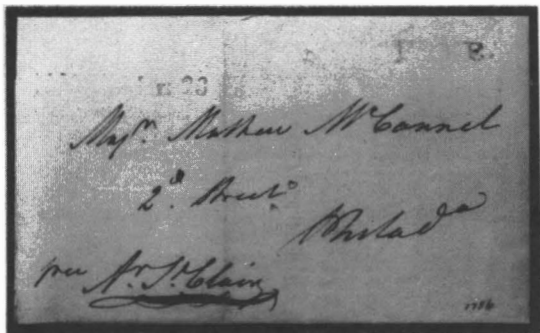 F R E E
23
Majr. Mathew McConnel
2d. Street
Philada
free Ar. St. Clair
1786